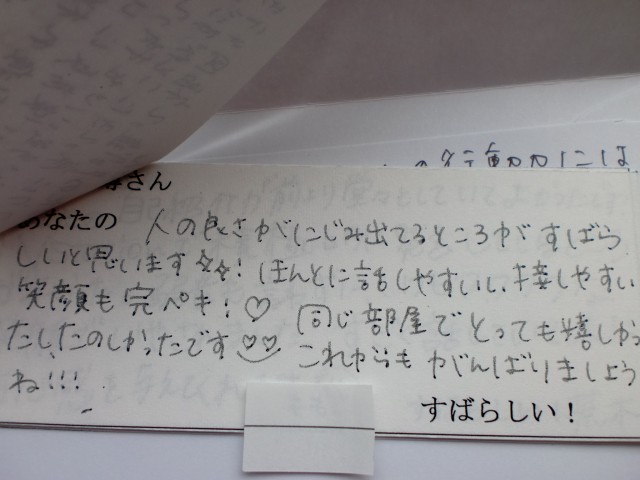 の行動力には
さん
あなたの 人の良さがにじみ出てるところがすばら
しいと思います☆☆! ほんとに話しやすいし、接しやすい
笑顔も完ペキ!♡ 同じ部屋でとっても嬉しかっ
たし、たのしかったです これからもがんばりましょう
ね!!!
すばらしい!